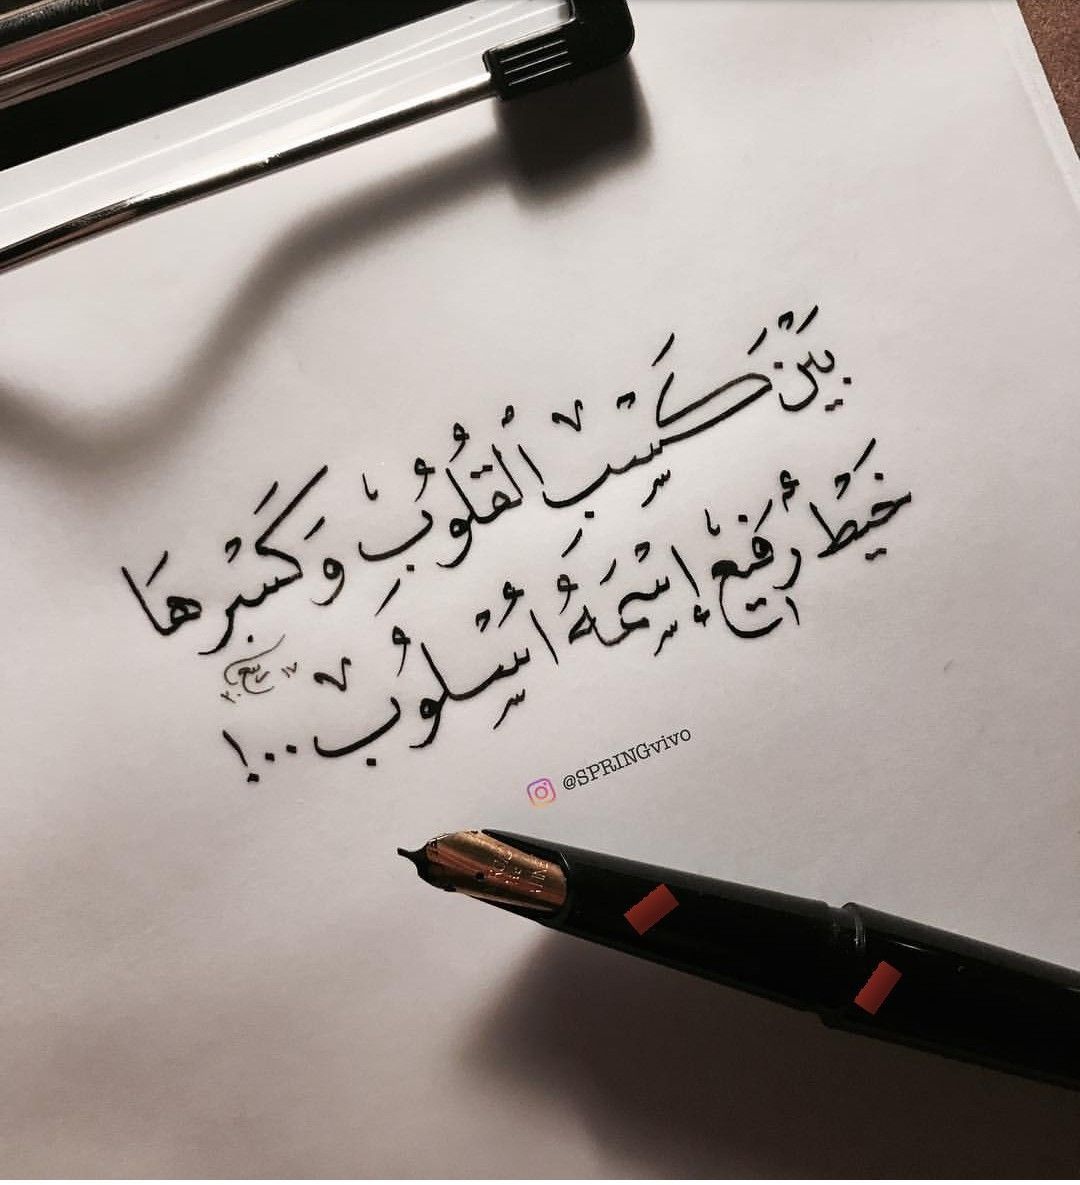 بَيْنَ كَسْبِ الْقُلُوبِ وَكَسْرِهَا
خَيْطٌ رَفِيعٌ إِسْمُهُ أُسْلُوبٌ...!
ربيع ١٧
@SPRINGvivo